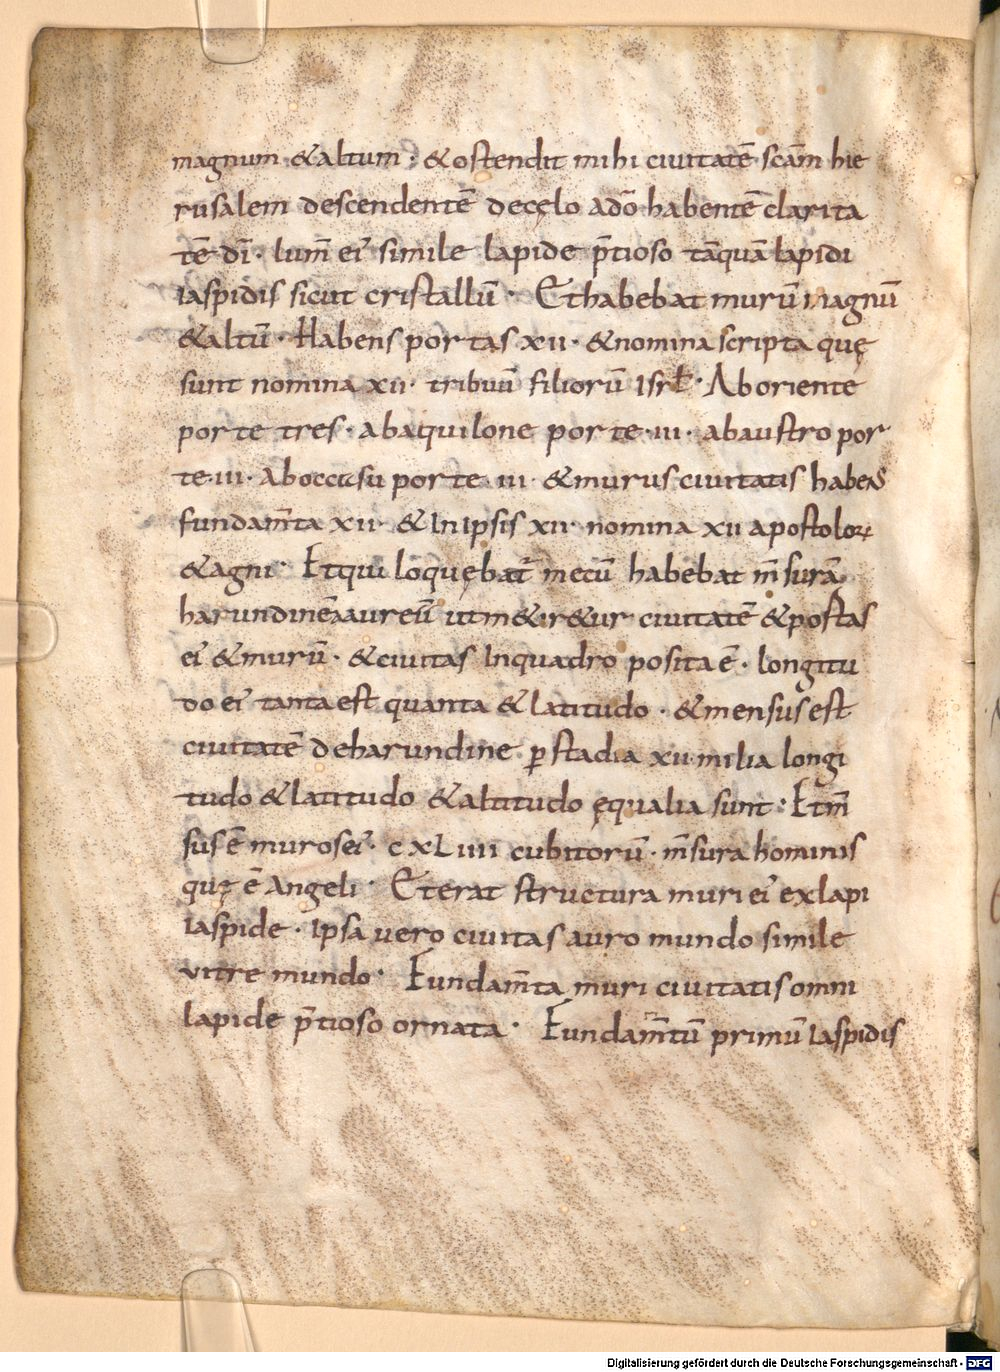 magnum &altum · &ostendit mihi ciuitatē scām hie
rusalem descendentē decęlo adō habentē clarita
tē dī · lum̄ ei' simile lapide p̄tioso tāquā lapidi
iaspidis sicut cristallū · Ethabebat murū magnū
&altū · Habens portas xii · &nomina scripta quę
sunt nomina xii · tribuū filiorū isrł · Aboriente
porte tres · abaquilone porte · iii · abaustro por
te · iii · Aboccasu porte · iii · &murus ciuitatis habens
fundam̄ta xii · &inipsis xii · nomina xii apostoloꝝ
&agni · Etqui loquębat' mecū habebat m̄surā
harundinēaaureū utm&ir&ur ciuitatē &postas
ei' &murū · &ciuitas inquadro posita ē · longitu
do ei' tanta est quanta &latitudo · &mensus est
ciuitatē deharundine ꝑstadia xii · milia longi
tudo &latitudo &altitudo ęqualia sunt · Etm̄
sus ē murosei' · cxliiii cubitorū · m̄sura hominis
quę ē Angeli · Eterat structura muri ei' exlapi
iaspide · ipsa uero ciuitas auro mundo simile
vitre mundo · Fundam̄ta muri ciuitatis omni
lapide p̄tioso ornata · Fundam̄tū primū iaspidis
Digitalisierung gefördert durch die Deutsche Forschungsgemeinschaft - DFG